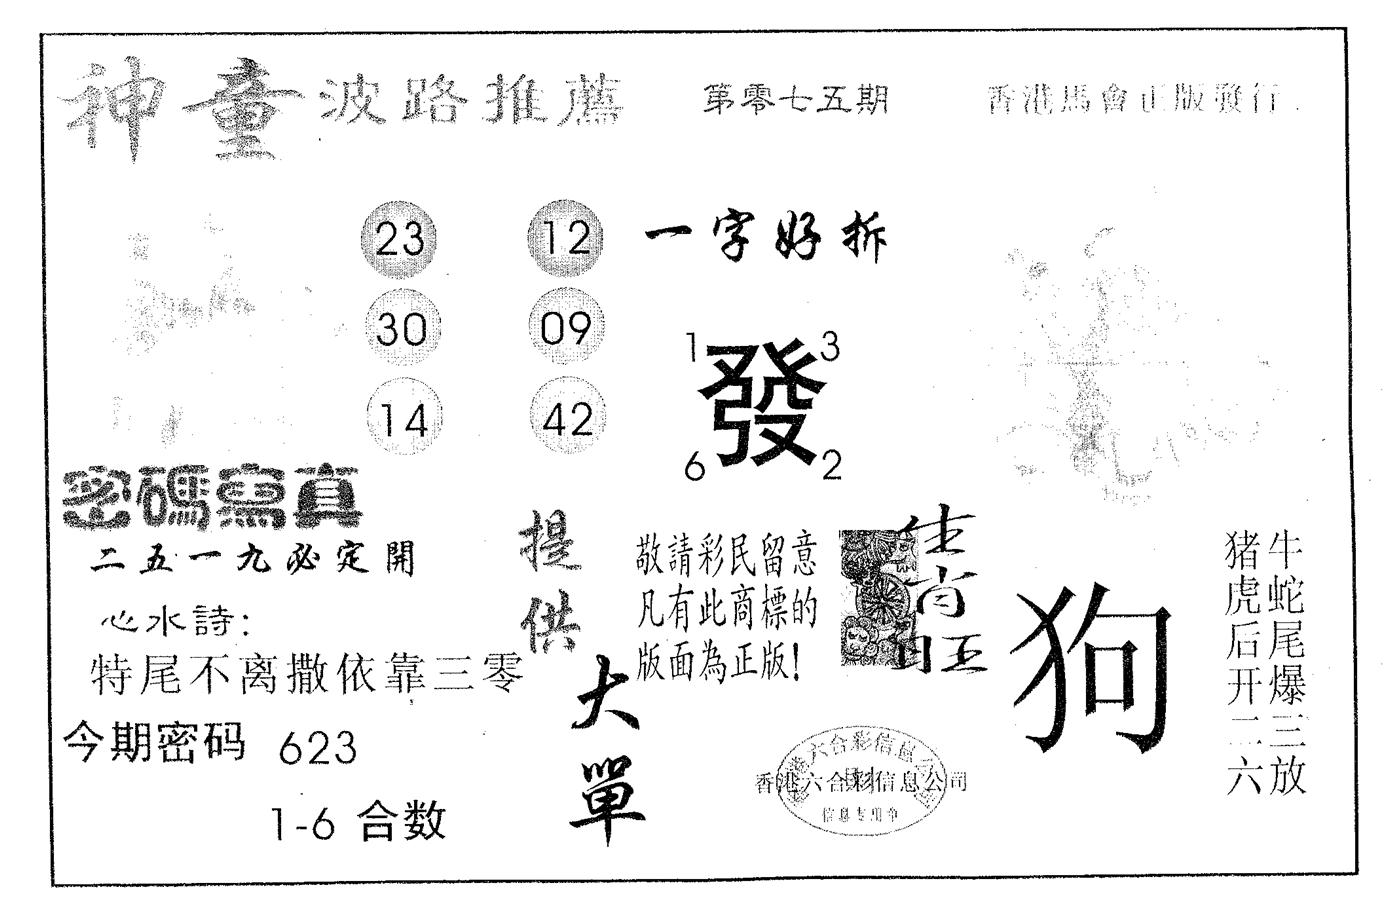 神童波路推薦
第零七五期
香港馬會正版發行
23 12
30 09
14 42
一字好拆
1 3
發
6 2
密碼寫真
二五一九必定開
心水詩:
特尾不离撒依靠三零
今期密码 623
1-6 合数
提供
大單
敬請彩民留意
凡有此商標的
版面為正版!
生肖旺
狗
牛蛇尾爆三放
猪虎后开二六
香港六合彩信息公司
香港六合彩信息公司
信息专用章